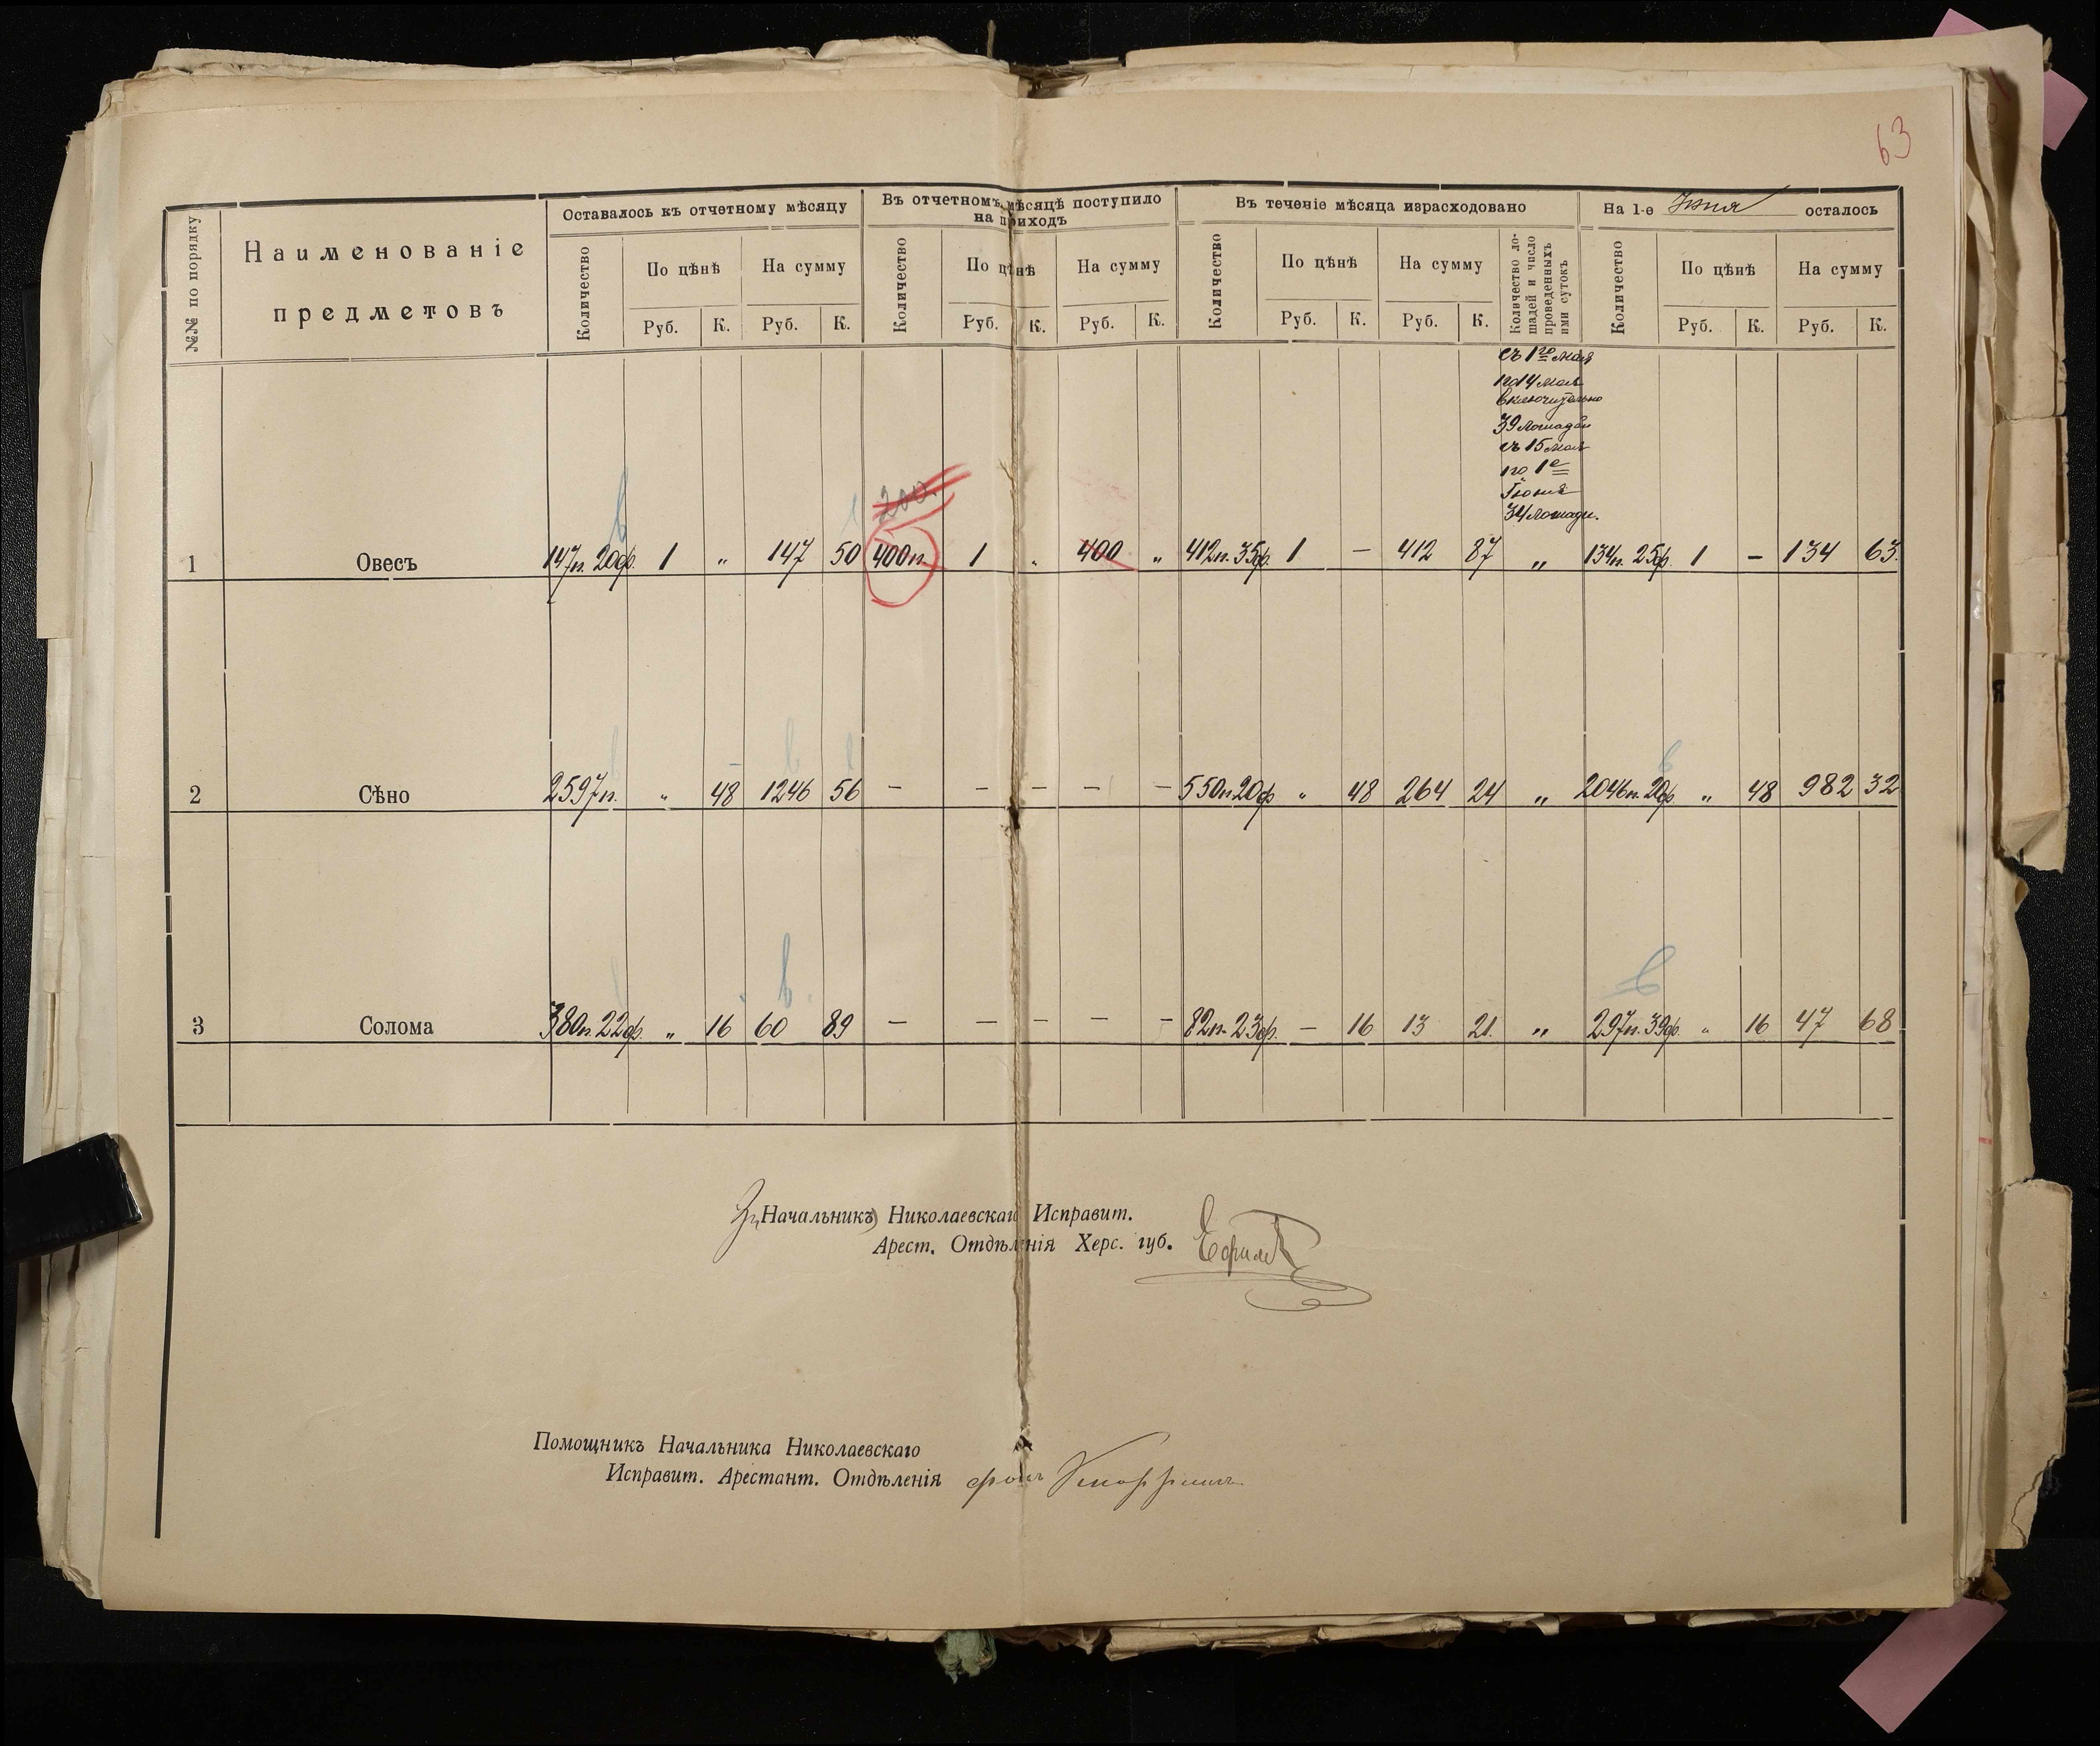 63
№№ по порядку
Наименованіе
предметовъ
Оставалось къ отчетному мѣсяцу
Въ отчетномъ мѣсяцѣ поступило
на приходъ
Въ теченіе мѣсяца израсходовано
На 1-е Іюня осталось
Количество По цѣнѣ На сумму Количество По цѣнѣ На сумму Количество По цѣнѣ На сумму
Количество ло-
шадей и число
проведенныхъ
ими сутокъ
Количество По цѣнѣ На сумму
Руб. К. Руб. К. Руб. К. Руб. К. Руб. К. Руб. К. Руб. К. Руб. К.
съ 1го мая
по 14 мая
включительно
39 лошадей
съ 15 мая
по 1е
Іюня
34 лошади.
200.
1 Овесъ 147п. 20ф. 1 „ 147 50 400п. 1 „ 400 „ 412п. 35ф. 1 — 412 87 „ 134п. 25ф. 1 — 134 63.
2 Сѣно 2597п. „ 48 1246 56 — — — — — 550п 20ф „ 48 264 24 „ 2046п. 20ф „ 48 982 32
3 Солома 380п. 22ф. „ 16 60 89 — — — — — 82п. 23ф. — 16 13 21. „ 297п. 39ф. „ 16 47 68
За Начальникъ Николаевскаго Исправит.
Арест. Отдѣленія Херс. губ.
Помощникъ Начальника Николаевскаго
Исправит. Арестант. Отдѣленія фонъ